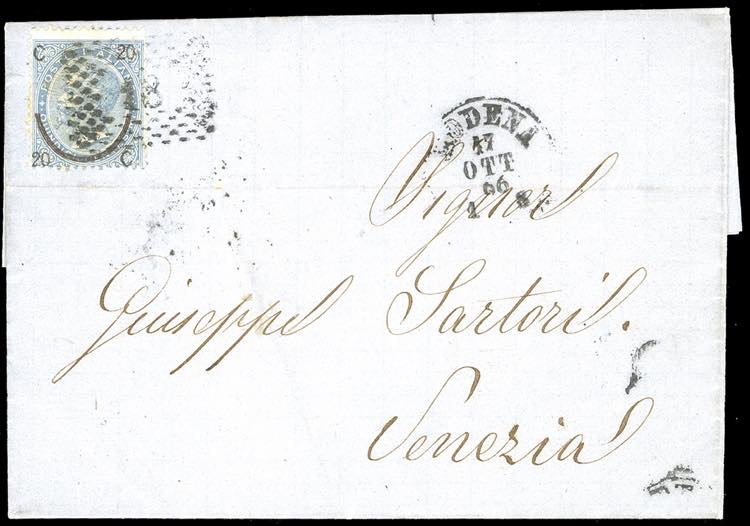 C 20
20 C
MODENA
17
OTT
66
Signor
Giuseppe Sartori.
Venezia